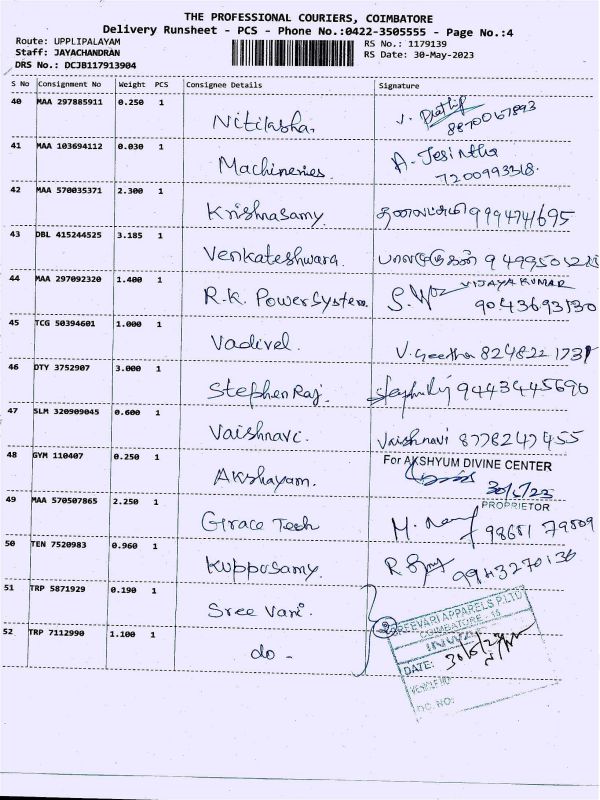 THE PROFESSIONAL COURIERS, COIMBATORE
Delivery Runsheet - PCS - Phone No.:0422-3505555 - Page No.:4
Route: UPPLIPALAYAM
Staff: JAYACHANDRAN
DRS No.: DCJB117913904
RS No.: 1179139
RS Date: 30-May-2023
S No Consignment No Weight PCS Consignee Details Signature
40 MAA 297885911 0.250 1 Nitiksha.
41 MAA 103694112 0.030 1 Machineries. A. Jesintha
7200993318.
42 MAA 570035371 2.300 1 Krishnasamy. 9994741695
43 DBL 415244525 3.185 1 Venkateshwara.
44 MAA 297092320 1.400 1 R.K. Power System. VIJAYA KUMAR
9043693130
45 TCG 50394601 1.000 1 Vadivel. V. Geetha 8248221731
46 DTY 3752907 3.000 1 Stephen Raj. 9443445690
47 SLM 320909045 0.600 1 Vaishnavi. Vaishnavi 8778247455
48 GYM 110407 0.250 1 Akshayam. For AKSHYUM DIVINE CENTER
PROPRIETOR
49 MAA 570507865 2.250 1 Grace Tech 98651 79809
50 TEN 7520983 0.960 1 Kupposamy. 9943270136
51 TRP 5871929 0.190 1 Sree Vari.
52 TRP 7112990 1.100 1 do -
2
SREEVARI APPARELS P.LTD
COIMBATORE - 15
INWARD
DATE:
VEHICLE NO:
DC. NO: